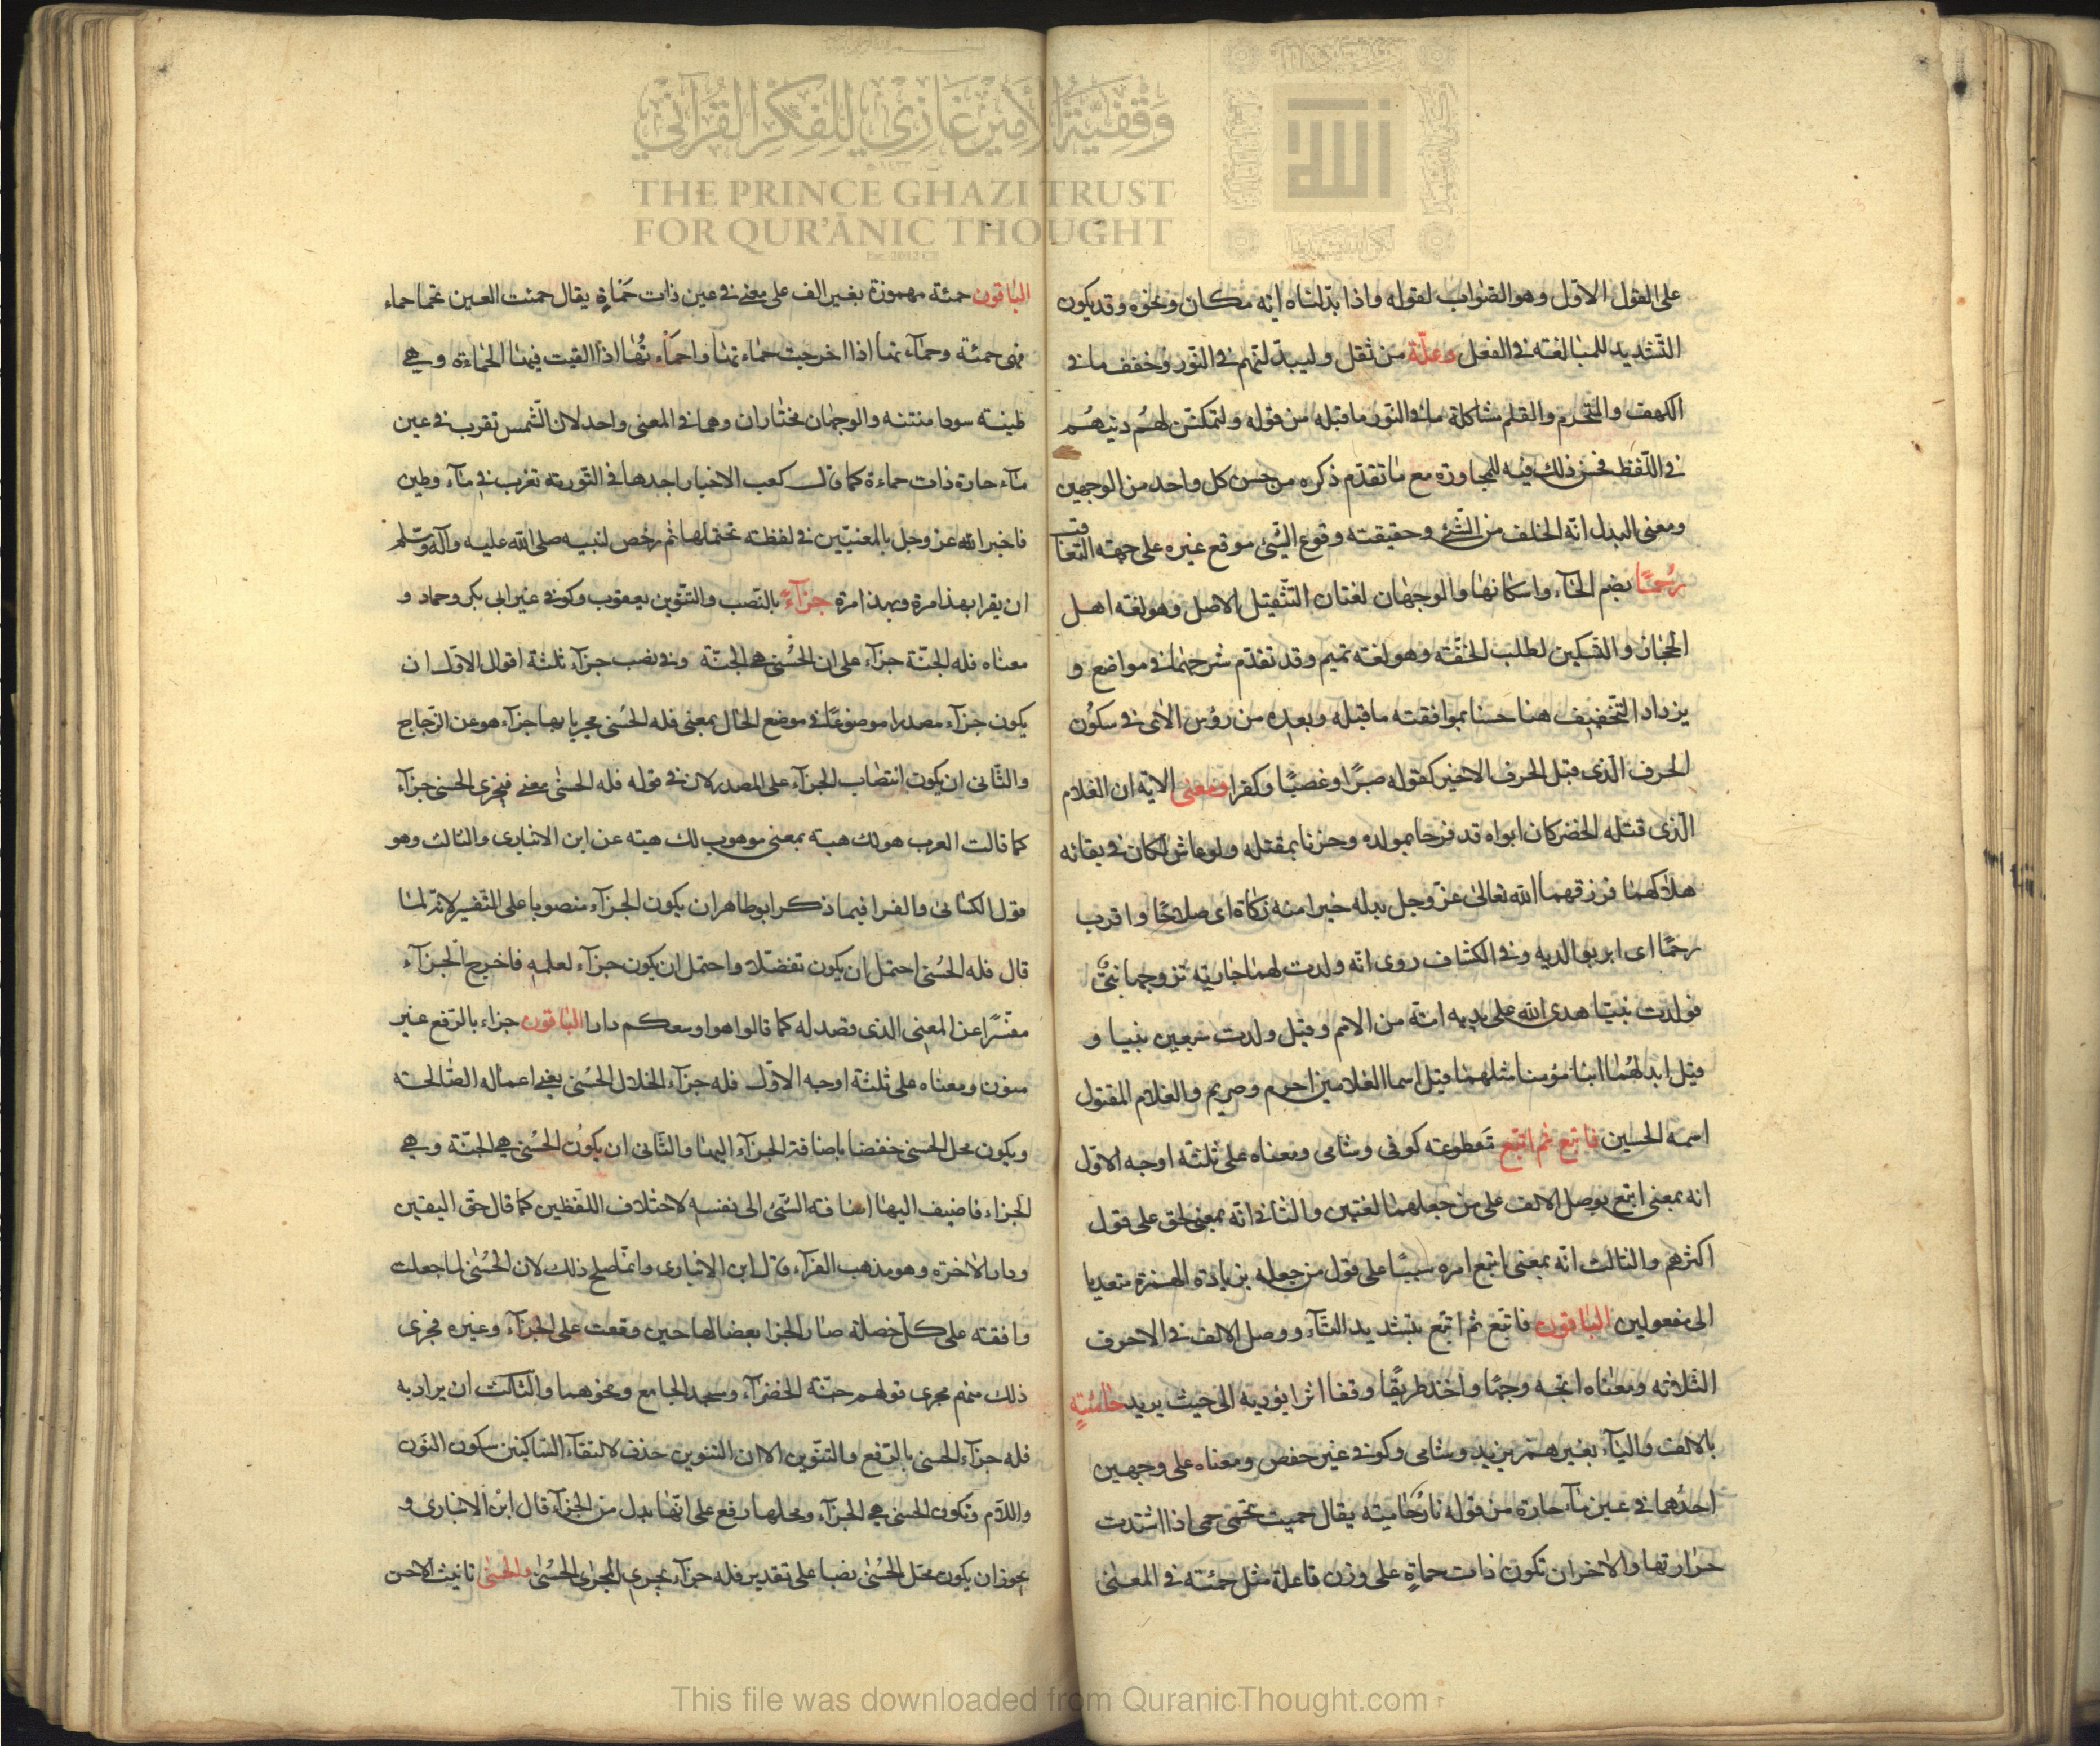 وقفية الأمير غازي للفكر القرآني
THE PRINCE GHAZI TRUST
FOR QUR'ĀNIC THOUGHT
Est. 2012 CE
على القول الاول وهو الصواب لقوله واذا بدلنا اية مكان ونحوه وقد يكون
التشديد للمبالغة فى الفعل وعلة من ثقل وليبدلنهم فى النور وخفف ما فى
الكهف والتحرم والقلم مشاكلة ما فى النور ما قبله من قوله وليمكنن لهم دينهم
فى اللفظ فحسن ذلك فيه للمجاورة مع ما تقدم ذكره من حسن كل واحد من الوجهين
ومعنى البدل انه الخلف من الشئ وحقيقته وقوع الشئ موقع غيره على جهة التعاقب
رحما بضم الحاء واسكانها والوجهان لغتان التثقيل الاصل وهو لغة اهل
الحجاز والتسكين لطلب الخفة وهو لغة تميم وقد تقدم شرحهما فى مواضع و
يزداد التخفيف هنا حسنا بموافقته ما قبله وبعده من رؤس الاى فى سكون
الحرف الذى قبل الحرف الاخير كقوله صبرا وغصبا وكفرا ومعنى الاية ان الغلام
الذى قتله الخضر كان ابواه قد فرحا بمولده وحزنا بمقتله ولو عاش لكان فى بقائه
هلاكهما فرزقهما الله تعالى عز وجل بدله خيرا منه زكاة اى صلاحا واقرب
رحما اى ابر بوالديه وفى الكشاف روى انه ولدت لهما جارية تزوجها نبى
فولدت نبيا هدى الله على يديه امة من الامم وقيل ولدت سبعين نبيا و
قيل ابدلهما ابنا مؤمنا مثلهما قيل اسما الغلامين احرم وصريم والغلام المقتول
اسمه الحسين فاتبع ثم اتبع مقطوعة كوفى وشامى ومعناه على ثلثة اوجه الاول
انه بمعنى اتبع بوصل الالف على من جعلهما لغتين والثانى انه بمعنى لحق على قول
اكثرهم والثالث انه بمعنى اتبع امره سببا على قول من جعله بزيادة الهمزة متعديا
الى مفعولين الباقون فاتبع ثم اتبع بتشديد التاء ووصل الالف فى الاحرف
الثلاثة ومعناه اتجه وجها واخذ طريقا وقفا اثرا يؤديه الى حيث يريد حامية
بالالف والياء بغير همز يزيد وشامى وكوفى غير حفص ومعناه على وجهين
احدهما فى عين ماء حارة من قوله نار حامية يقال حميت تحمى حمى اذا اشتدت
حرارتها والاخر ان تكون ذات حماة على وزن فاعلة مثل حمئة فى المعنى
الباقون حمئة مهموزة بغير الف على معنى فى عين ذات حماة يقال حمئت العين تحما حماء
فهى حمئة وحماء تها اذا اخرجت حماء تها واحماء تها اذا القيت فيها الحماءة وهى
طينة سودا منتنة والوجهان مختاران وهما فى المعنى واحد لان الشمس تغرب فى عين
ماء حارة ذات حماءة كما قال كعب الاخبار اجدها فى التورية تغرب فى ماء وطين
فاخبر الله عز وجل بالمعنيين فى لفظة تحتملها ثم رخص لنبيه صلى الله عليه واله وسلم
ان يقرا بهذا مرة وبهذا مرة جزاء بالنصب والتنوين يعقوب وكوفى غير ابى بكر وحماد و
معناه فله الجنة جزاء على ان الحسنى هى الجنة وفى نصب جزاء ثلثة اقوال الاول ان
يكون جزاء مصدرا موضوعا فى موضع الحال بمعنى فله الحسنى مجزيا بها جزاء هو عن الزجاج
والثانى ان يكون انتصاب الجزاء على المصدر لان فى قوله فله الحسنى معنى فيجزى الحسنى جزاء
كما قالت العرب هو لك هبة بمعنى موهوب لك هبة عن ابن الانبارى والثالث وهو
قول الكسائى والفرا فيما ذكر ابو طاهر ان يكون الجزاء منصوبا على التفسير لانه لما
قال فله الحسنى احتمل ان يكون تفضلا واحتمل ان يكون جزاء لعلمه فاخرج الجزاء
مفسرا عن المعنى الذى قصد له كما قالوا هو اوسعكم دارا الباقون جزاء بالرفع غير
منون ومعناه على ثلثة اوجه الاول فله جزاء الخلال الحسنى يعنى اعماله الصالحة
ويكون محل الحسنى خفضا باضافة الجزاء اليها والثانى ان يكون الحسنى هى الجنة وهى
الجزاء فاضيف اليها اضافة الشئ الى نفسه لاختلاف اللفظين كما قال حق اليقين
ودار الاخرة وهو مذهب الفراء قال ابن الانبارى وانما صلح ذلك لان الحسنى لما جعلت
وافقة على كل خصلة صار الجزا بعضا لها حين وقعت على الجزاء وغيره فجرى
ذلك منهم مجرى قولهم حبة الخضراء ومسجد الجامع ونحوهما والثالث ان يراد به
فله جزاء الحسنى بالرفع والتنوين الا ان التنوين حذف لالتقاء الساكنين سكون النون
واللام وتكون الحسنى هى الجزاء ومحلها رفع على انها بدل من الجزاء قال ابن الانبارى و
يجوز ان يكون محل الحسنى نصبا على تقدير فله جزاء يجزى المجزى الحسنى والحسنى تانيث الاحسن
This file was downloaded from QuranicThought.com